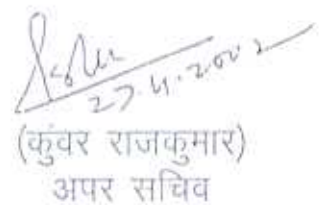 27.4.2002
(कुंवर राजकुमार)
अपर सचिव